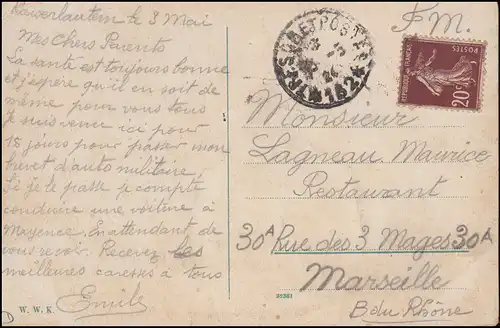 Kaiserlautern le 3 Mai
Mes Chers Parents
La santé est toujours bonne
et j'espère qu'il en soit de
même pour vous tous
Je suis venu ici pour
15 jours pour passer mon
brevet d'auto militaire
Si je le passe je compte
conduire une voiture à
Mayence. En attendant de
vous revoir. Recevez les
meilleures caresses à tous
Emile
W. W. K.
F.M.
POSTES
REPUBLIQUE FRANÇAISE
20c
Monsieur
Lagneau Maurice
Restaurant
30A Rue des 3 Mages 30A
Marseille
B du Rhône